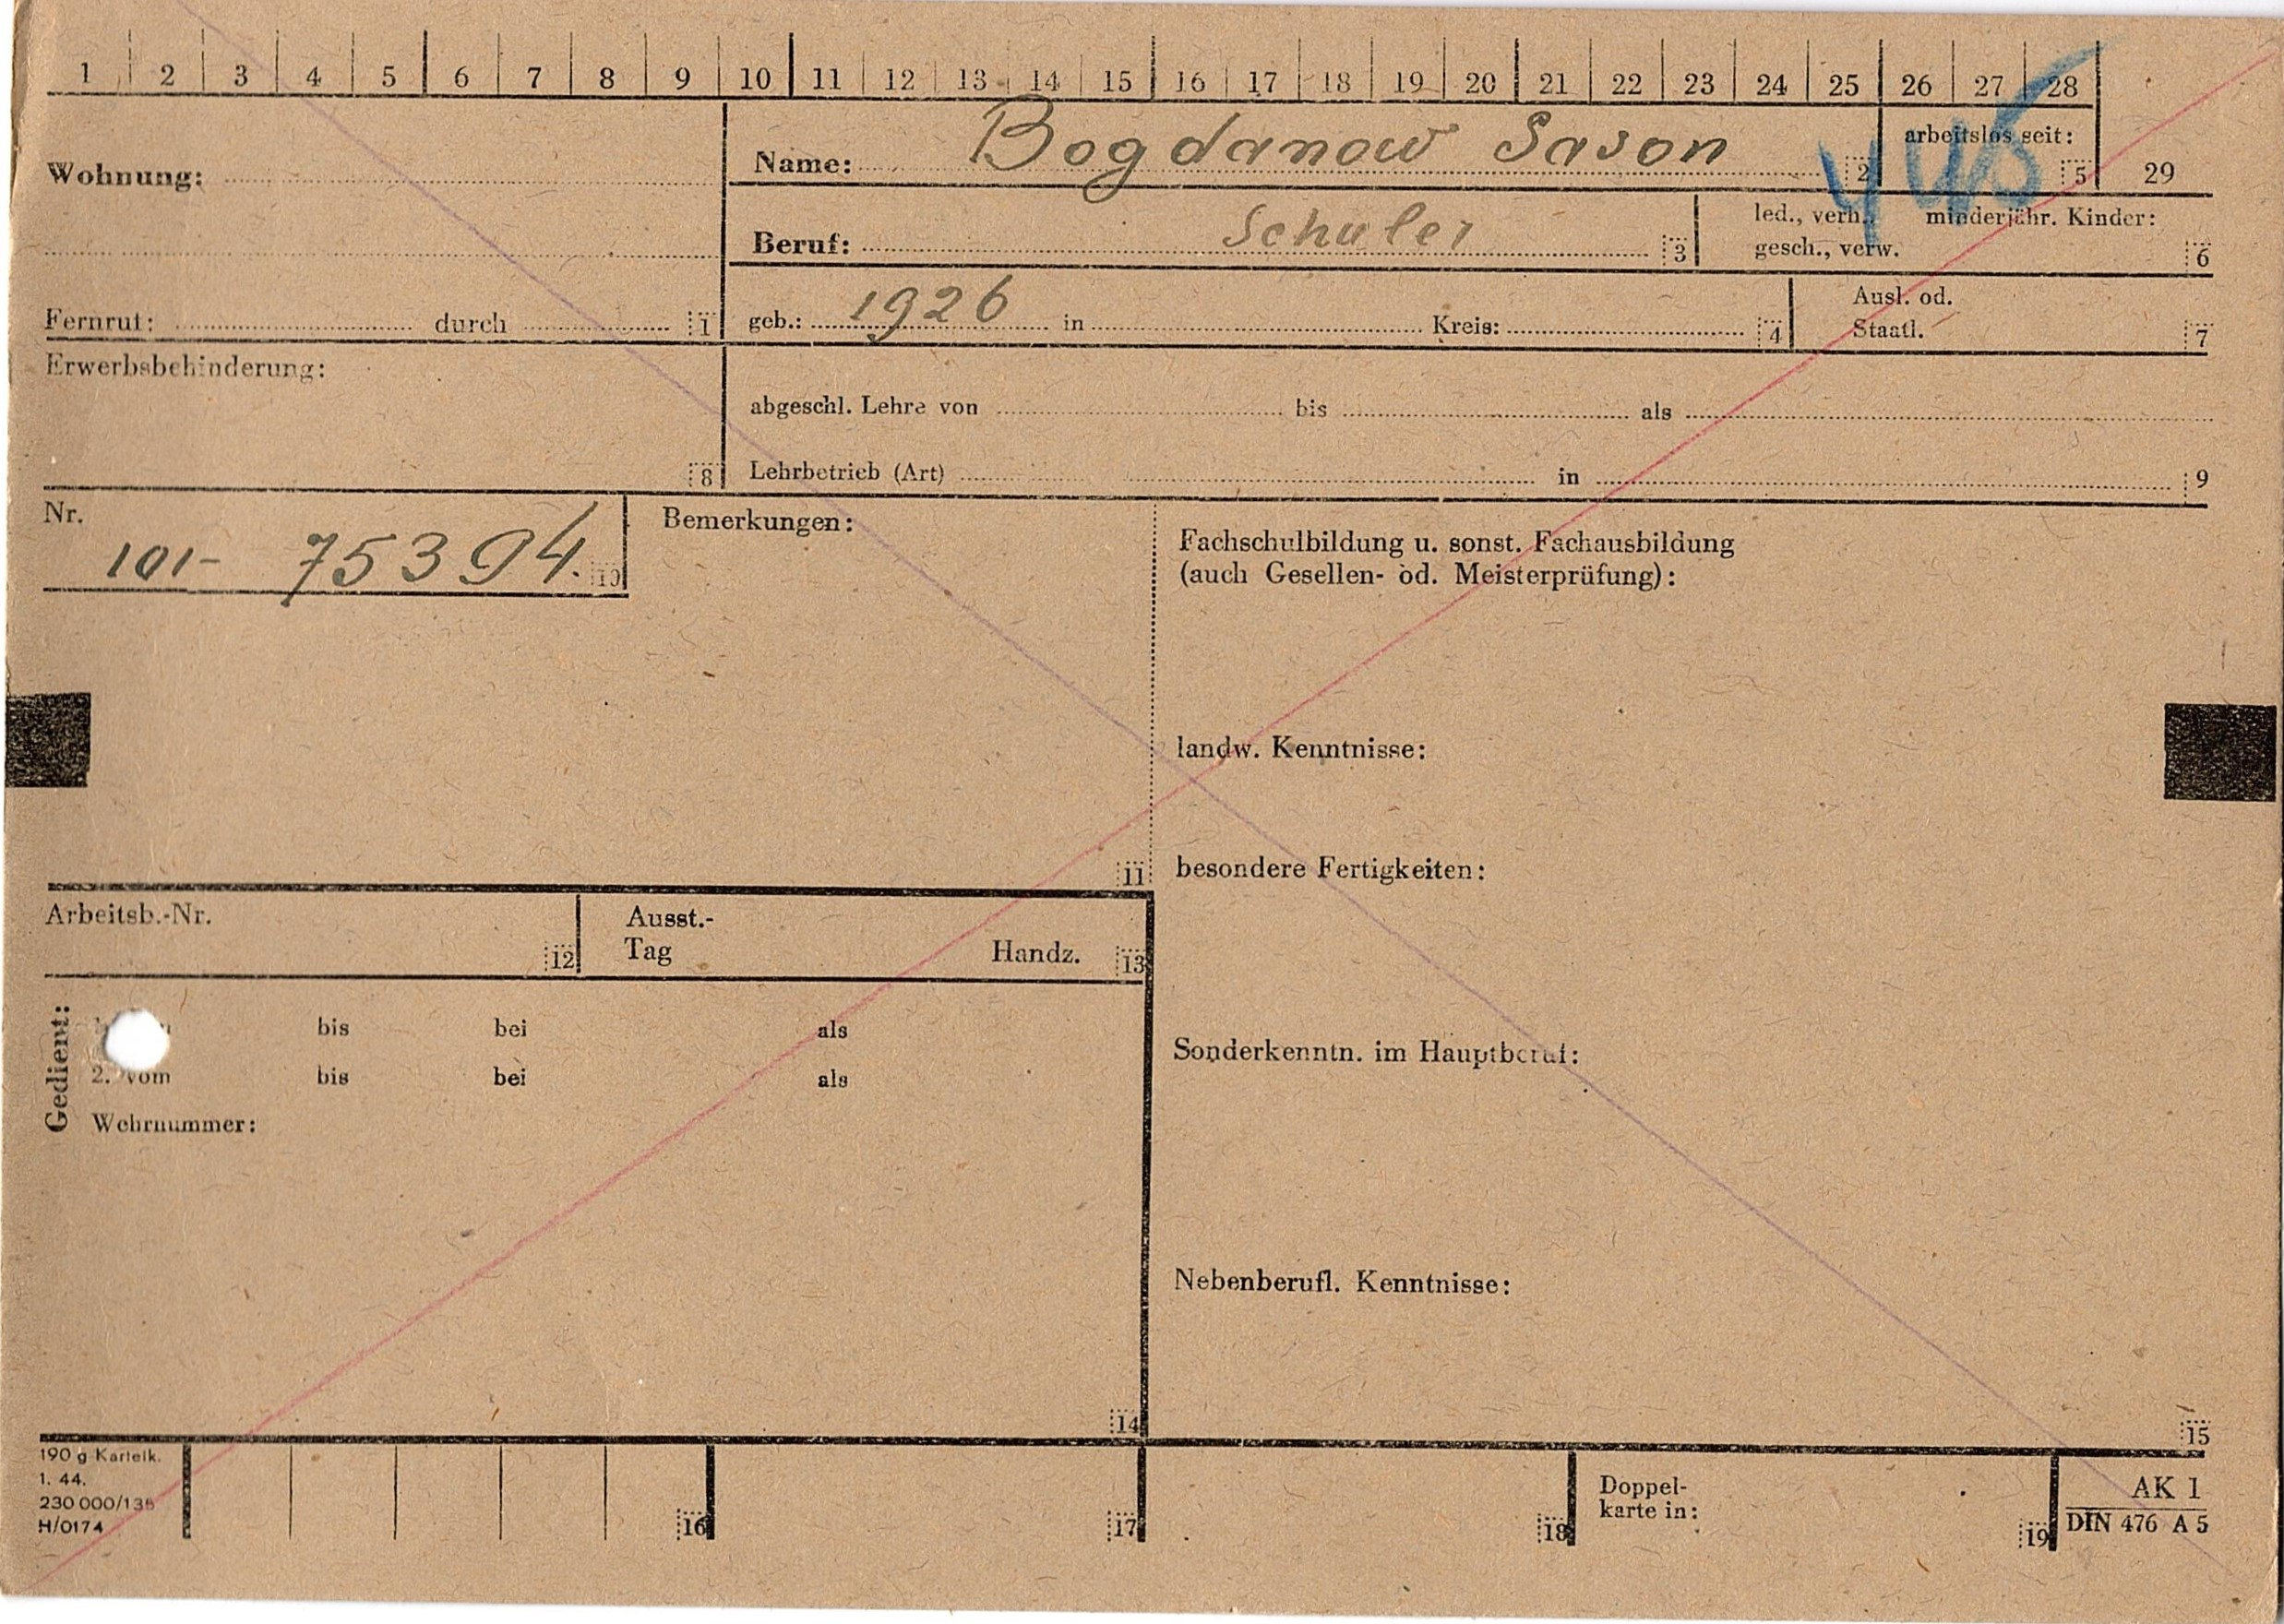 1 2 3 4 5 6 7 8 9 10 11 12 13 14 15 16 17 18 19 20 21 22 23 24 25 26 27 28
Wohnung:
Name: Bogdanow Sason 2
arbeitslos seit: 5
29
Beruf: Schuler 3
led., verh., minderjähr. Kinder:
gesch., verw. 6
Fernruf: durch 1
geb.: 1926 in Kreis: 4
Ausl. od.
Staatl. 7
Erwerbsbehinderung:
8
abgeschl. Lehre von bis als
Lehrbetrieb (Art) in 9
Nr.
101- 75394. 10
Bemerkungen:
11
Fachschulbildung u. sonst. Fachausbildung
(auch Gesellen- od. Meisterprüfung):
landw. Kenntnisse:
besondere Fertigkeiten:
Arbeitsb.-Nr. 12
Ausst.-
Tag Handz. 13
Gedient:
bis bei als
2. vom bis bei als
Wehrnummer:
14
Sonderkenntn. im Hauptberuf:
Nebenberufl. Kenntnisse:
15
190 g Karteik.
1. 44.
230 000/138
H/0174
16
17
18
Doppel-
karte in:
19
AK 1
DIN 476 A 5